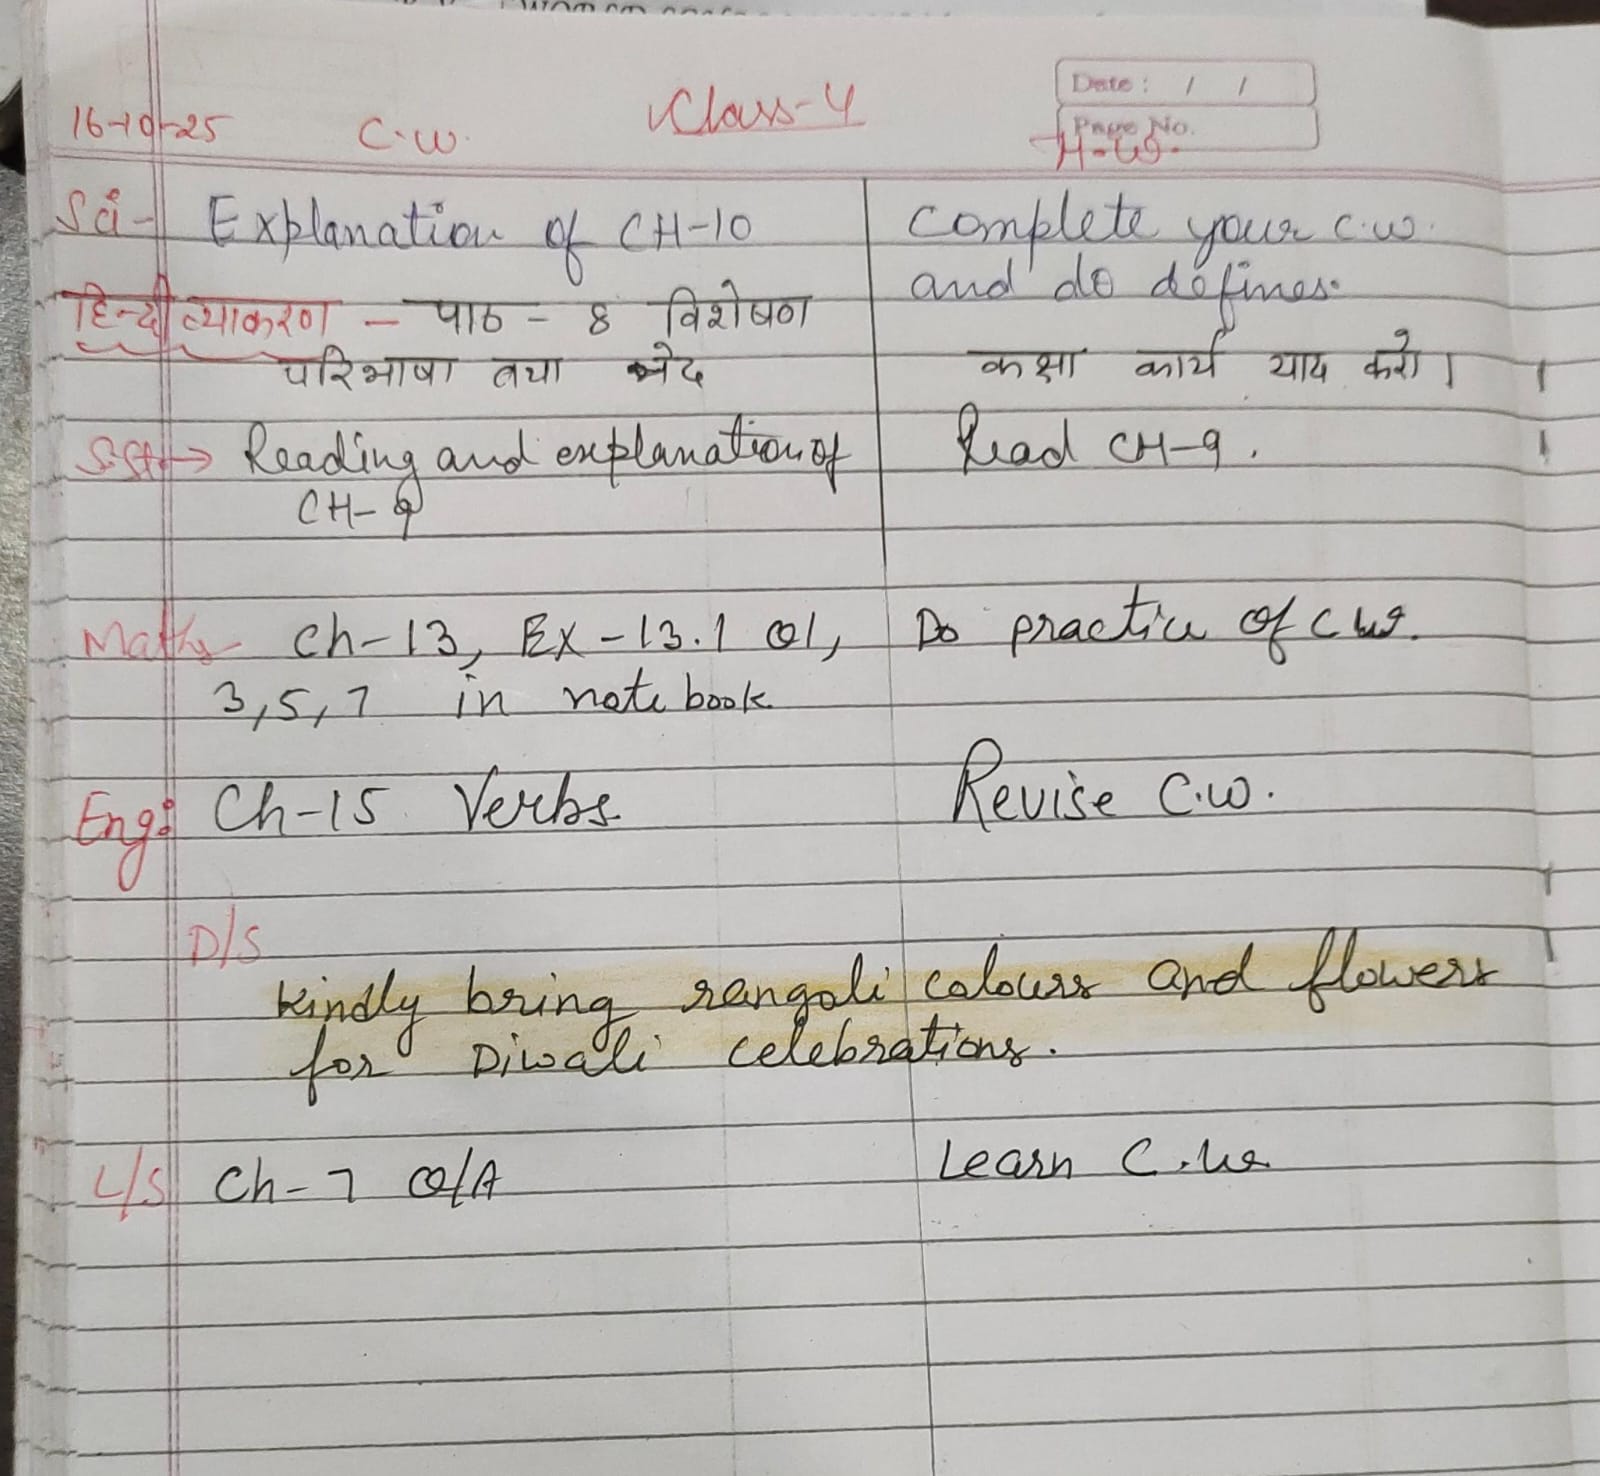 Class-4
Date : / /
Page No.
16-10-25 C.W. H.W.
Sci- Explanation of CH-10 Complete your c.w.
and do defines.
हिन्दी व्याकरण - पाठ - 8 विशेषण
परिभाषा तथा भेद कक्षा कार्य याद करो।
S.St → Reading and explanation of Read CH-9.
CH-9
Maths Ch-13, Ex-13.1 Q1, Do practice of C.W.
3,5,7 in notebook
Eng: Ch-15 Verbs Revise C.W.
D/S
kindly bring rangoli colours and flowers
for Diwali celebrations.
L/S Ch-7 Q/A Learn C.W.